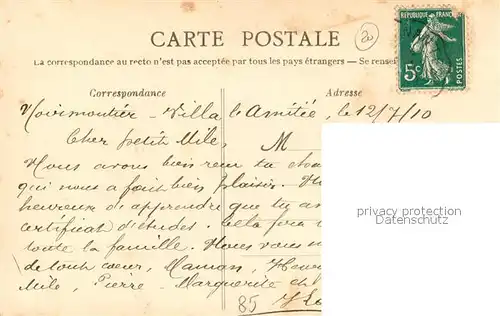 CARTE POSTALE
20
RÉPUBLIQUE FRANÇAISE
5c
POSTES
La correspondance au recto n'est pas acceptée par tous les pays étrangers — Se rensei
Correspondance
Adresse
Noirmoutier - Villa l'Amitié, le 12/7/10
Cher petit Mile,
M
Nous avons bien reçu ta
qui nous a fait bien plaisir.
heureux d'apprendre que tu as
certificat d'études. Cela fera
toute la famille. Nous vous
de tout coeur, Maman,
Mile, Pierre - Marguerite
85
privacy protection
Datenschutz